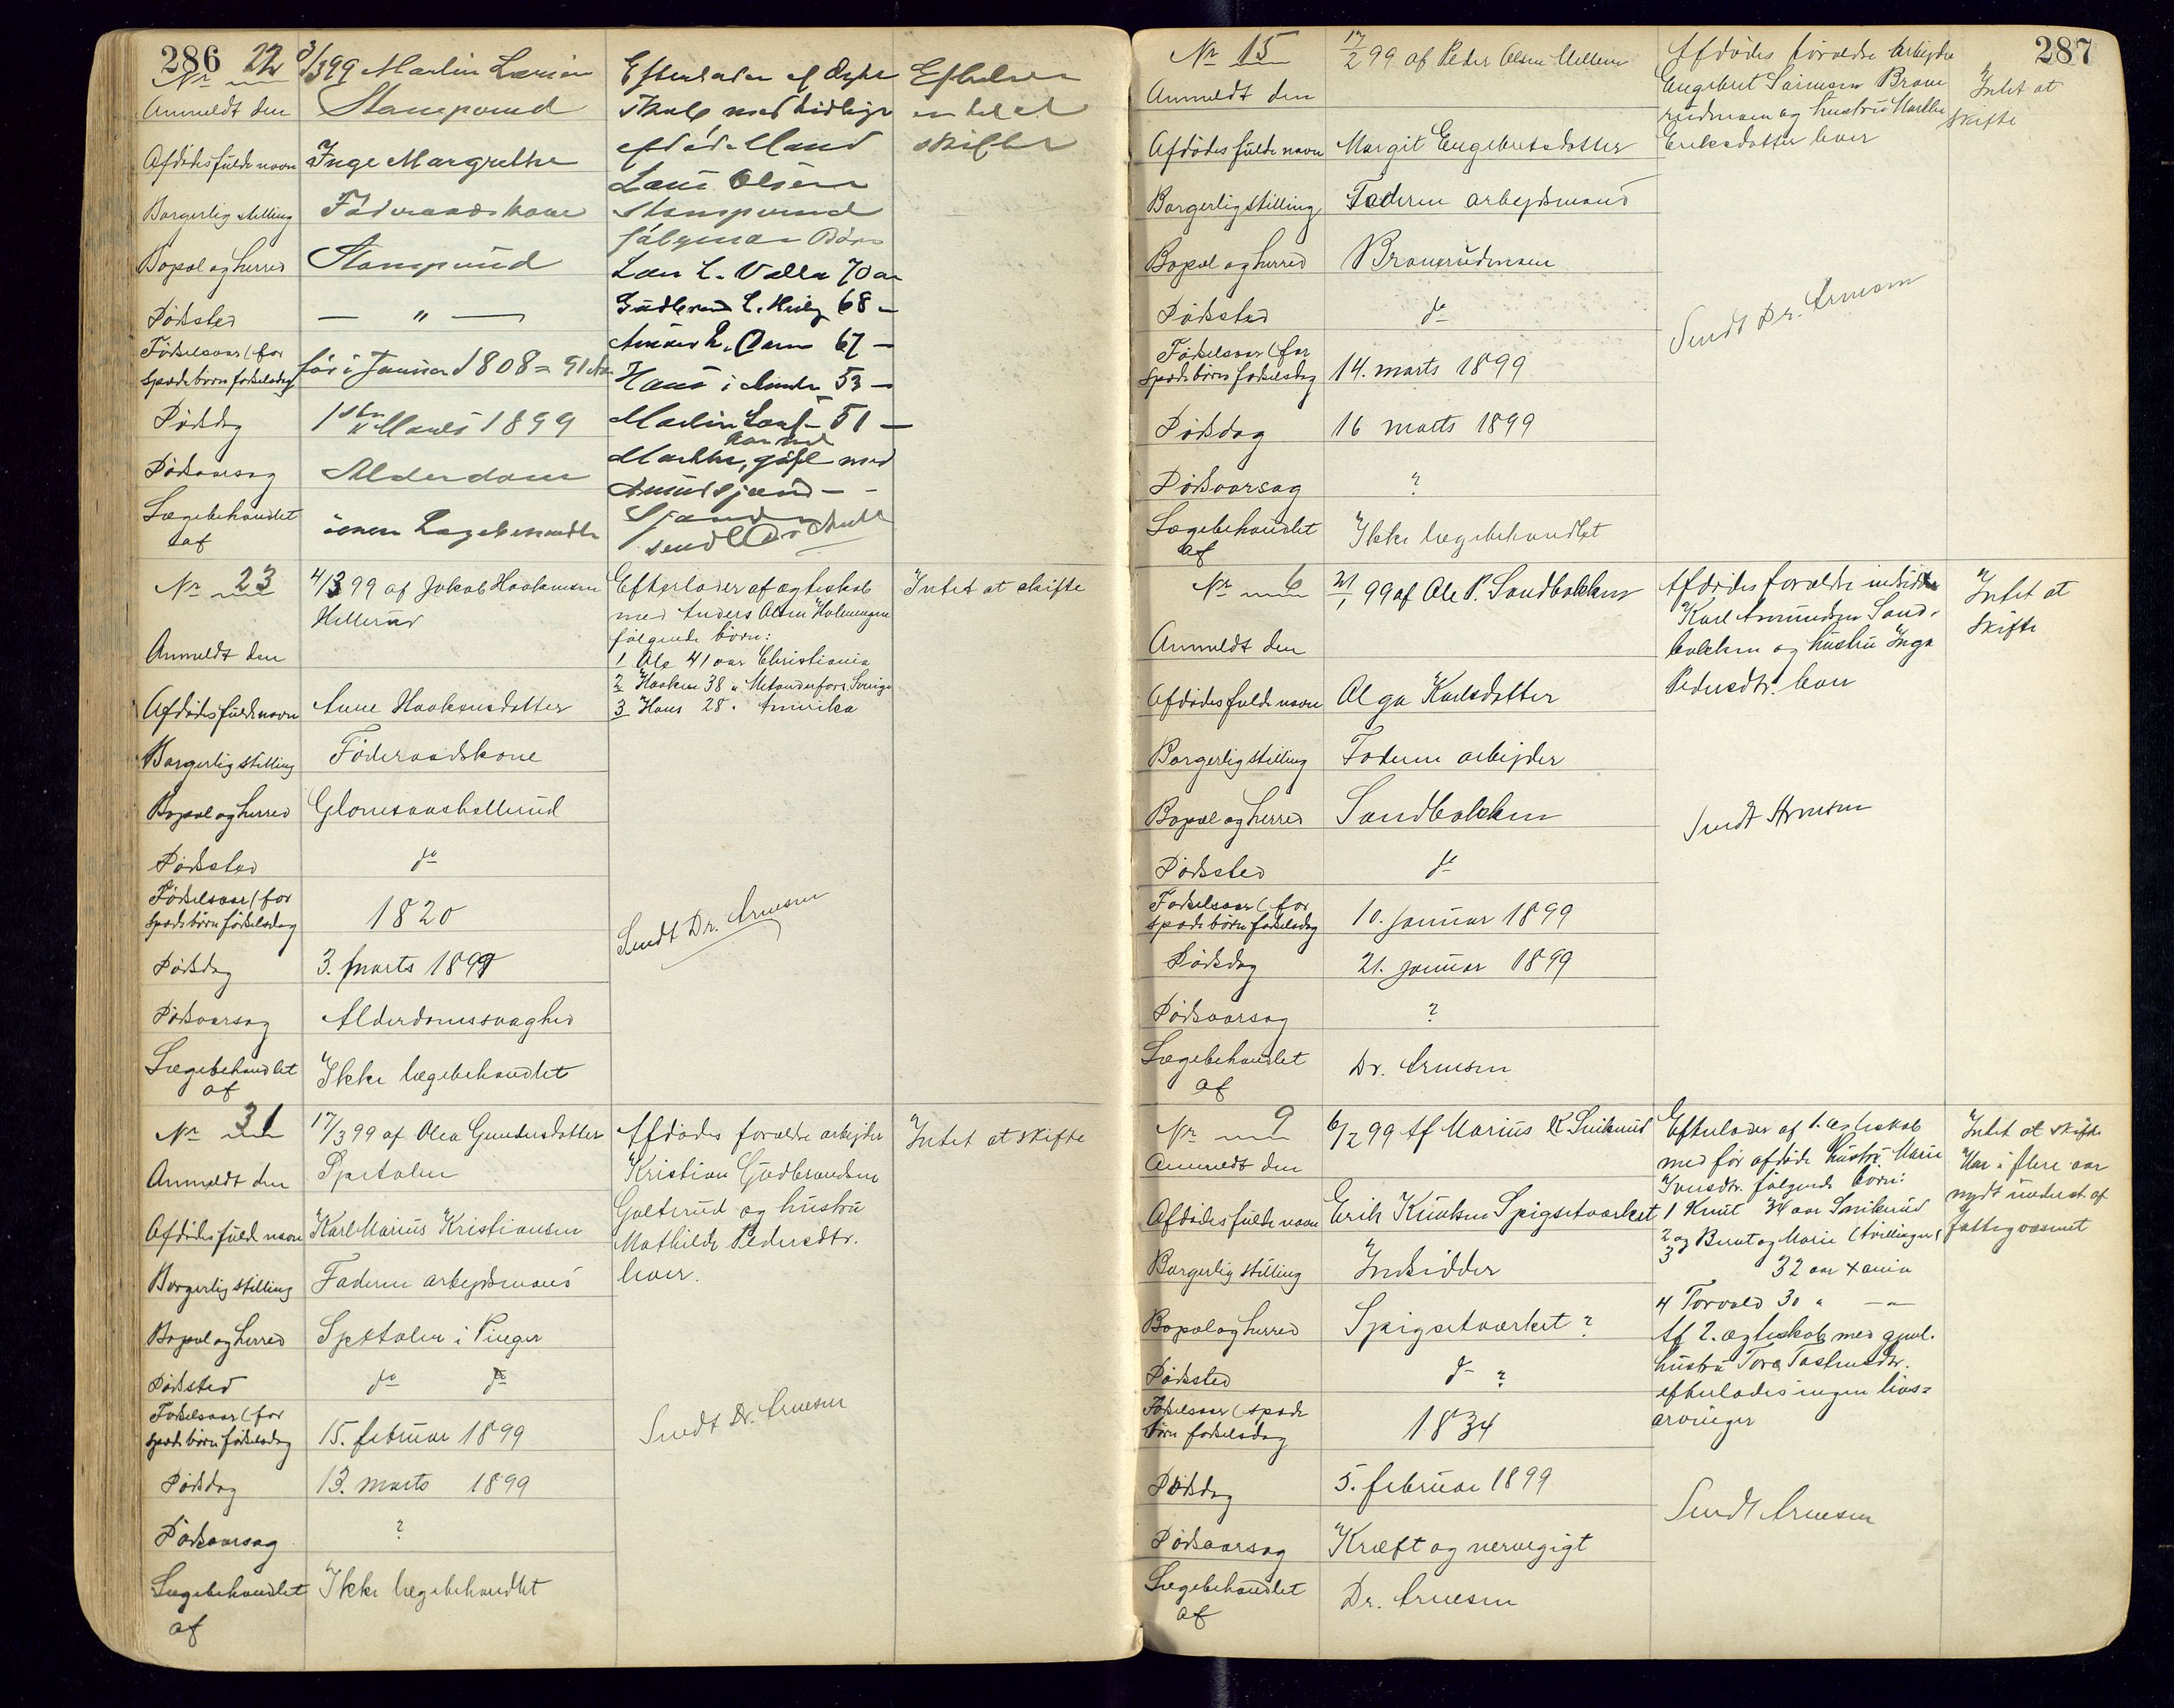 286
Nr 22
3/3 99 Martin Larsen
Anmeldt den
Stampund
Afdødes fulde navn
Inge Margrethe
Borgerlig stilling
Føderaadskone
Bopæl og herred
Stampund
Dødsted
— " —
Fødselsaar (for
spæde børn fødselsdag
før i Januar 1808 = 91 Aar
Dødsdag
1ste Marts 1899
Dødsaarsag
Alderdom
Lægebehandlet
af
ingen Lægebehandler
Efterlader af Ægte
skab med tidligere
afdøde Mand
Lars Olsen
Stampund
følgende Børn
Lars L. Valla 70 aar
Gudbrand L. 68 -
67 -
Hans i 53 -
Martin 51 -
Marthe, gift med
send Dr
Eftelader
skifte
Nr 23
4/3 99 af Jakob Haakensen
Hellerud
Anmeldt den
Afdødes fulde navn
Anne Haakensdatter
Borgerlig stilling
Føderaadskone
Bopæl og herred
Glomsaashellerud
Dødsted
do
Fødselsaar (for
spæde børn fødselsdag
1820
Dødsdag
3. marts 1899
Dødsaarsag
Alderdomssvaghed
Lægebehandlet
af
Ikke lægebehandlet
Efterlader af ægteskab
med Anders Olsen Holmengen
følgende børn:
1 Ole 41 aar Christiania
2 Haaken 38 " Sverige
3 Hans 28 " Amerika
Sendt Dr. Arnesen
Intet at skifte
Nr 31
17/3 99 af Olea Gundersdatter
Anmeldt den
Spetalen
Afdødes fulde navn
Karl Marius Kristiansen
Borgerlig stilling
Faderen arbejdsmand
Bopæl og herred
Spetalen i Vinger
Dødsted
do do
Fødselsaar (for
spæde børn fødselsdag
15. februar 1899
Dødsdag
13. marts 1899
Dødsaarsag
?
Lægebehandlet
af
Ikke lægebehandlet
Afdødes forældre arbejder
Kristian Gudbrandsen
Galterud og hustru
Mathilde Pedersdtr.
lever.
Sendt Dr. Arnesen
Intet at skifte
287
Nr 15
17/2 99 af Peder Olsen Mellem
Anmeldt den
Afdødes fulde navn
Margit Engebretsdatter
Borgerlig stilling
Faderen arbejdsmand
Bopæl og herred
Braurudmoen
Dødsted
do
Fødselsaar (for
spæde børns fødselsdag
14. marts 1899
Dødsdag
16 marts 1899
Dødsaarsag
?
Lægebehandlet
af
Ikke lægebehandlet
Afdødes forældre Arbejder
Engebret Sørensen Brau
rudmoen og hustru Marthe
Eriksdatter lever
Sendt Dr. Arnesen
Intet at
skifte
Nr 6
21/1 99 af Ole P. Sandbakken
Anmeldt den
Afdødes fulde navn
Olga Karlsdatter
Borgerlig stilling
Faderen arbejder
Bopæl og herred
Sandbakken
Dødsted
do
Fødselsaar (for
spæde børn fødselsdag
10. januar 1899
Dødsdag
21. januar 1899
Dødsaarsag
?
Lægebehandlet
af
Dr. Arnesen
Afdødes forældre indsidder
Karl Amundsen Sand-
bakken og hustru Inga
Pedersdtr. lever
Sendt Arnesen
Intet at
skifte
Nr 9
6/2 99 Af Marius K. Snikerud
Anmeldt den
Afdødes fulde navn
Erik Knutsen Spigsetværket
Borgerlig stilling
Indsidder
Bopæl og herred
Spigsetværket ?
Dødsted
do ?
Fødselsaar (spæde
børn fødselsdag
1834
Dødsdag
5. februar 1899
Dødsaarsag
Kræft og nervegigt
Lægebehandlet
af
Dr. Arnesen
Efterlader af 1. ægteskab
med før afdøde hustru Marie
Iversdtr. følgende børn:
1 Knut 34 aar Snikerud
2 og Bernt og Marie (tvillinger)
3
32 aar Xania
4 Torvald 30 " —"—
Af 2. ægteskab med gjenl.
hustru Tora Tostensdtr.
efterlades ingen livs=
arvinger
Sendt Arnesen
Intet at skifte
Har i flere aar
nydt underst. af
fattigvæsenet